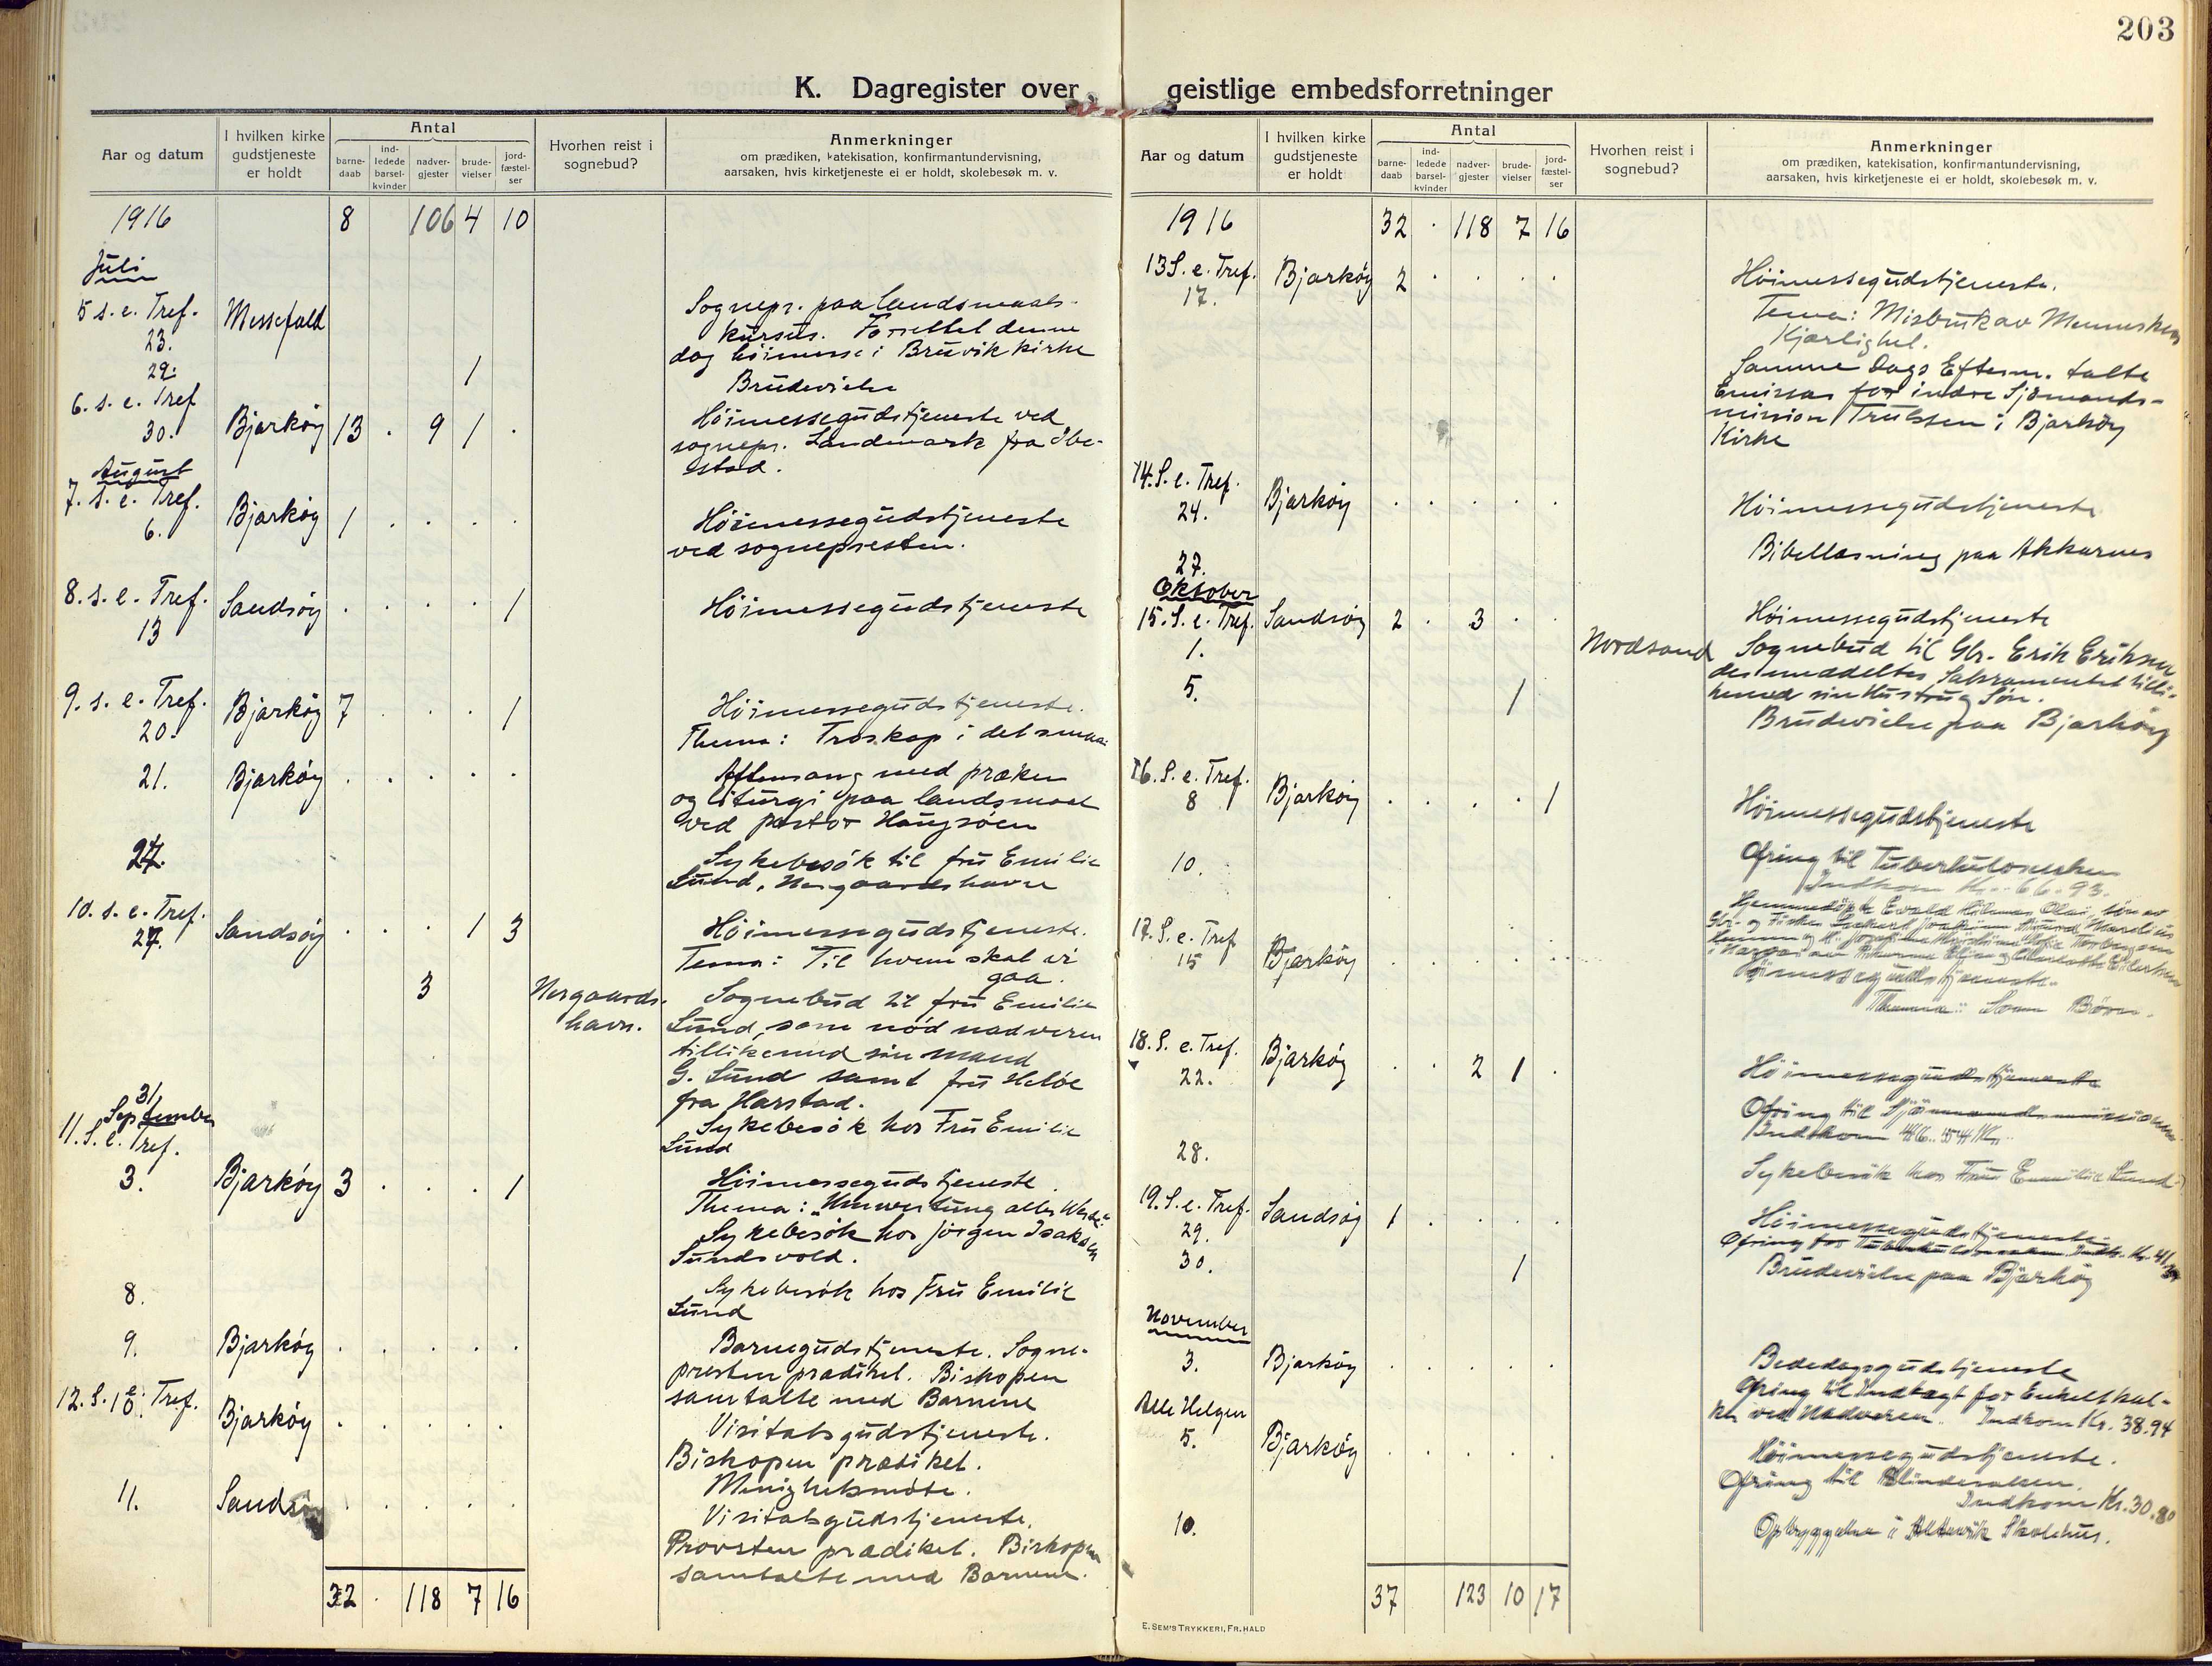 203
K. Dagregister over
Aar og datum
I hvilken kirke gudstjeneste er holdt
Antal
barne-daab
ind-ledede barsel-kvinder
nadver-gjester
brude-vielser
jord-fæstel-ser
Hvorhen reist i sognebud?
Anmerkninger
om prædiken, katekisation, konfirmantundervisning,
aarsaken, hvis kirketjeneste ei er holdt, skolebesøk m. v.
1916 8 106 4 10
Juli
5 s. e. Tref. Messefald Sognepr. paa landsmaals-
23. kursus. Forrettet denne
dag høimesse i Bruvik kirke
29. 1 Brudevielse
6. s. e. Tref Høimessegudstjeneste ved
30. Bjarkøy 13 . 9 1 . sognepr. Landmark fra Ibe-
stad.
August
7. s. e. Tref. Bjarkøy 1 . . . . Høimessegudstjeneste
6. ved sognepresten.
8. s. e. Tref. Sandsøy . . . . 1 Høimessegudstjeneste
13
9. s. e. Tref. Bjarkøy 7 . . . 1 Høimessegudstjeneste.
20. Thema: Troskap i det smaa.
21. Bjarkøy . . . . . Aftensang med præken
og liturgi paa landsmaal
ved pastor Haugsøen
24. Sykebesøk til fru Emilie
Lund, Nergaardshavn
10. s. e. Tref. Sandsøy . . . 1 3 Høimessegudstjeneste.
27. Tema: Til hvem skal vi
gaa.
3 Nergaards- Sognebud til fru Emilie
havn. Lund, som nød nadveren
tillikemed sin mand
G. Lund samt fru
fra Harstad.
31 Sykebesøk hos Fru Emilie
Lund
September
11. S. e. Tref.
3. Bjarkøy 3 . . . 1 Høimessegudstjeneste.
Thema: "Umwertung aller Werte".
Sykebesøk hos Jørgen Isaksen
Sundsvold.
8. Sykebesøk hos Fru Emilie
Lund
9. Bjarkøy . . . . . Barnegudstjeneste. Sogne-
presten prædiket. Bishopen
samtalte med Barnene
12. S. e. Tref. 10. Bjarkøy . . . . . Visitatsgudstjeneste.
Biskopen prædiket.
Menighetsmøte.
11. Sandsøy . . . . . Visitatsgudstjeneste.
Provsten prædiket. Biskopen
samtalte med Barnene.
32 . 118 7 16
geistlige embedsforretninger
Aar og datum
I hvilken kirke gudstjeneste er holdt
Antal
barne-daab
ind-ledede barsel-kvinder
nadver-gjester
brude-vielser
jord-fæstel-ser
Hvorhen reist i sognebud?
Anmerkninger
om prædiken, katekisation, konfirmantundervisning,
aarsaken, hvis kirketjeneste ei er holdt, skolebesøk m. v.
1916 32 . 118 7 16
13 S. e. Tref. Bjarkøy 2 . . . . Høimessegudstjeneste.
17. Tema: Misbruk av Menneskers
Kjærlighet.
Samme Dags Efterm. talte
Emissær for indre Sjømands-
mission Trulssen i Bjarkøy
Kirke
14. S. e. Tref.
24. Bjarkøy . . . . . Høimessegudstjeneste
27. Bibellæsning paa Akkarnes
Oktober
15. S. e. Tref. Sandsøy 2 . 3 . . Høimessegudstjeneste
1. Nordsand Sognebud til Gbr. Erik Eriksen
der meddeltes Sakramentet tilli-
kemed sin Hustru og Søn.
5. 1 Brudevielse paa Bjarkøy
16. S. e. Tref.
8 Bjarkøy . . . . 1 Høimessegudstjeneste
Ofring til Tuberkulosesaken
Indkom Kr. 66.93.
10. Hjemmedøpt Evald Hilmar Olai, søn av
17. S. e. Tref
15 Bjarkøy . . . . . Høimessegudstjeneste.
Thema: Som Børn.
18. S. e. Tref. Bjarkøy . . 2 1 . Høimessegudstjeneste
22. Ofring til Sjømandsmissionen
Indkom
28. Sykebesøk hos Fru Emilie Lund
19. S. e. Tref. Sandsøy 1 . . . . Høimessegudstjeneste.
29. Ofring for Tuberkulosesaken Indk. Kr. 41.
30. 1 Brudevielse paa Bjarkøy
November
3. Bjarkøy . . . . . Bededagsgudstjeneste
Ofring til Indtægt for Enkeltkal-
ker ved Nadveren. Indkom Kr. 38.94
Alle Helgen
5. Bjarkøy . . . . . Høimessegudstjeneste.
Ofring til Blindesaken.
Indkom Kr. 30.80
10. Opbyggelse i Skolehus.
37 123 10 17
E. SEM'S TRYKKERI, FR. HALD